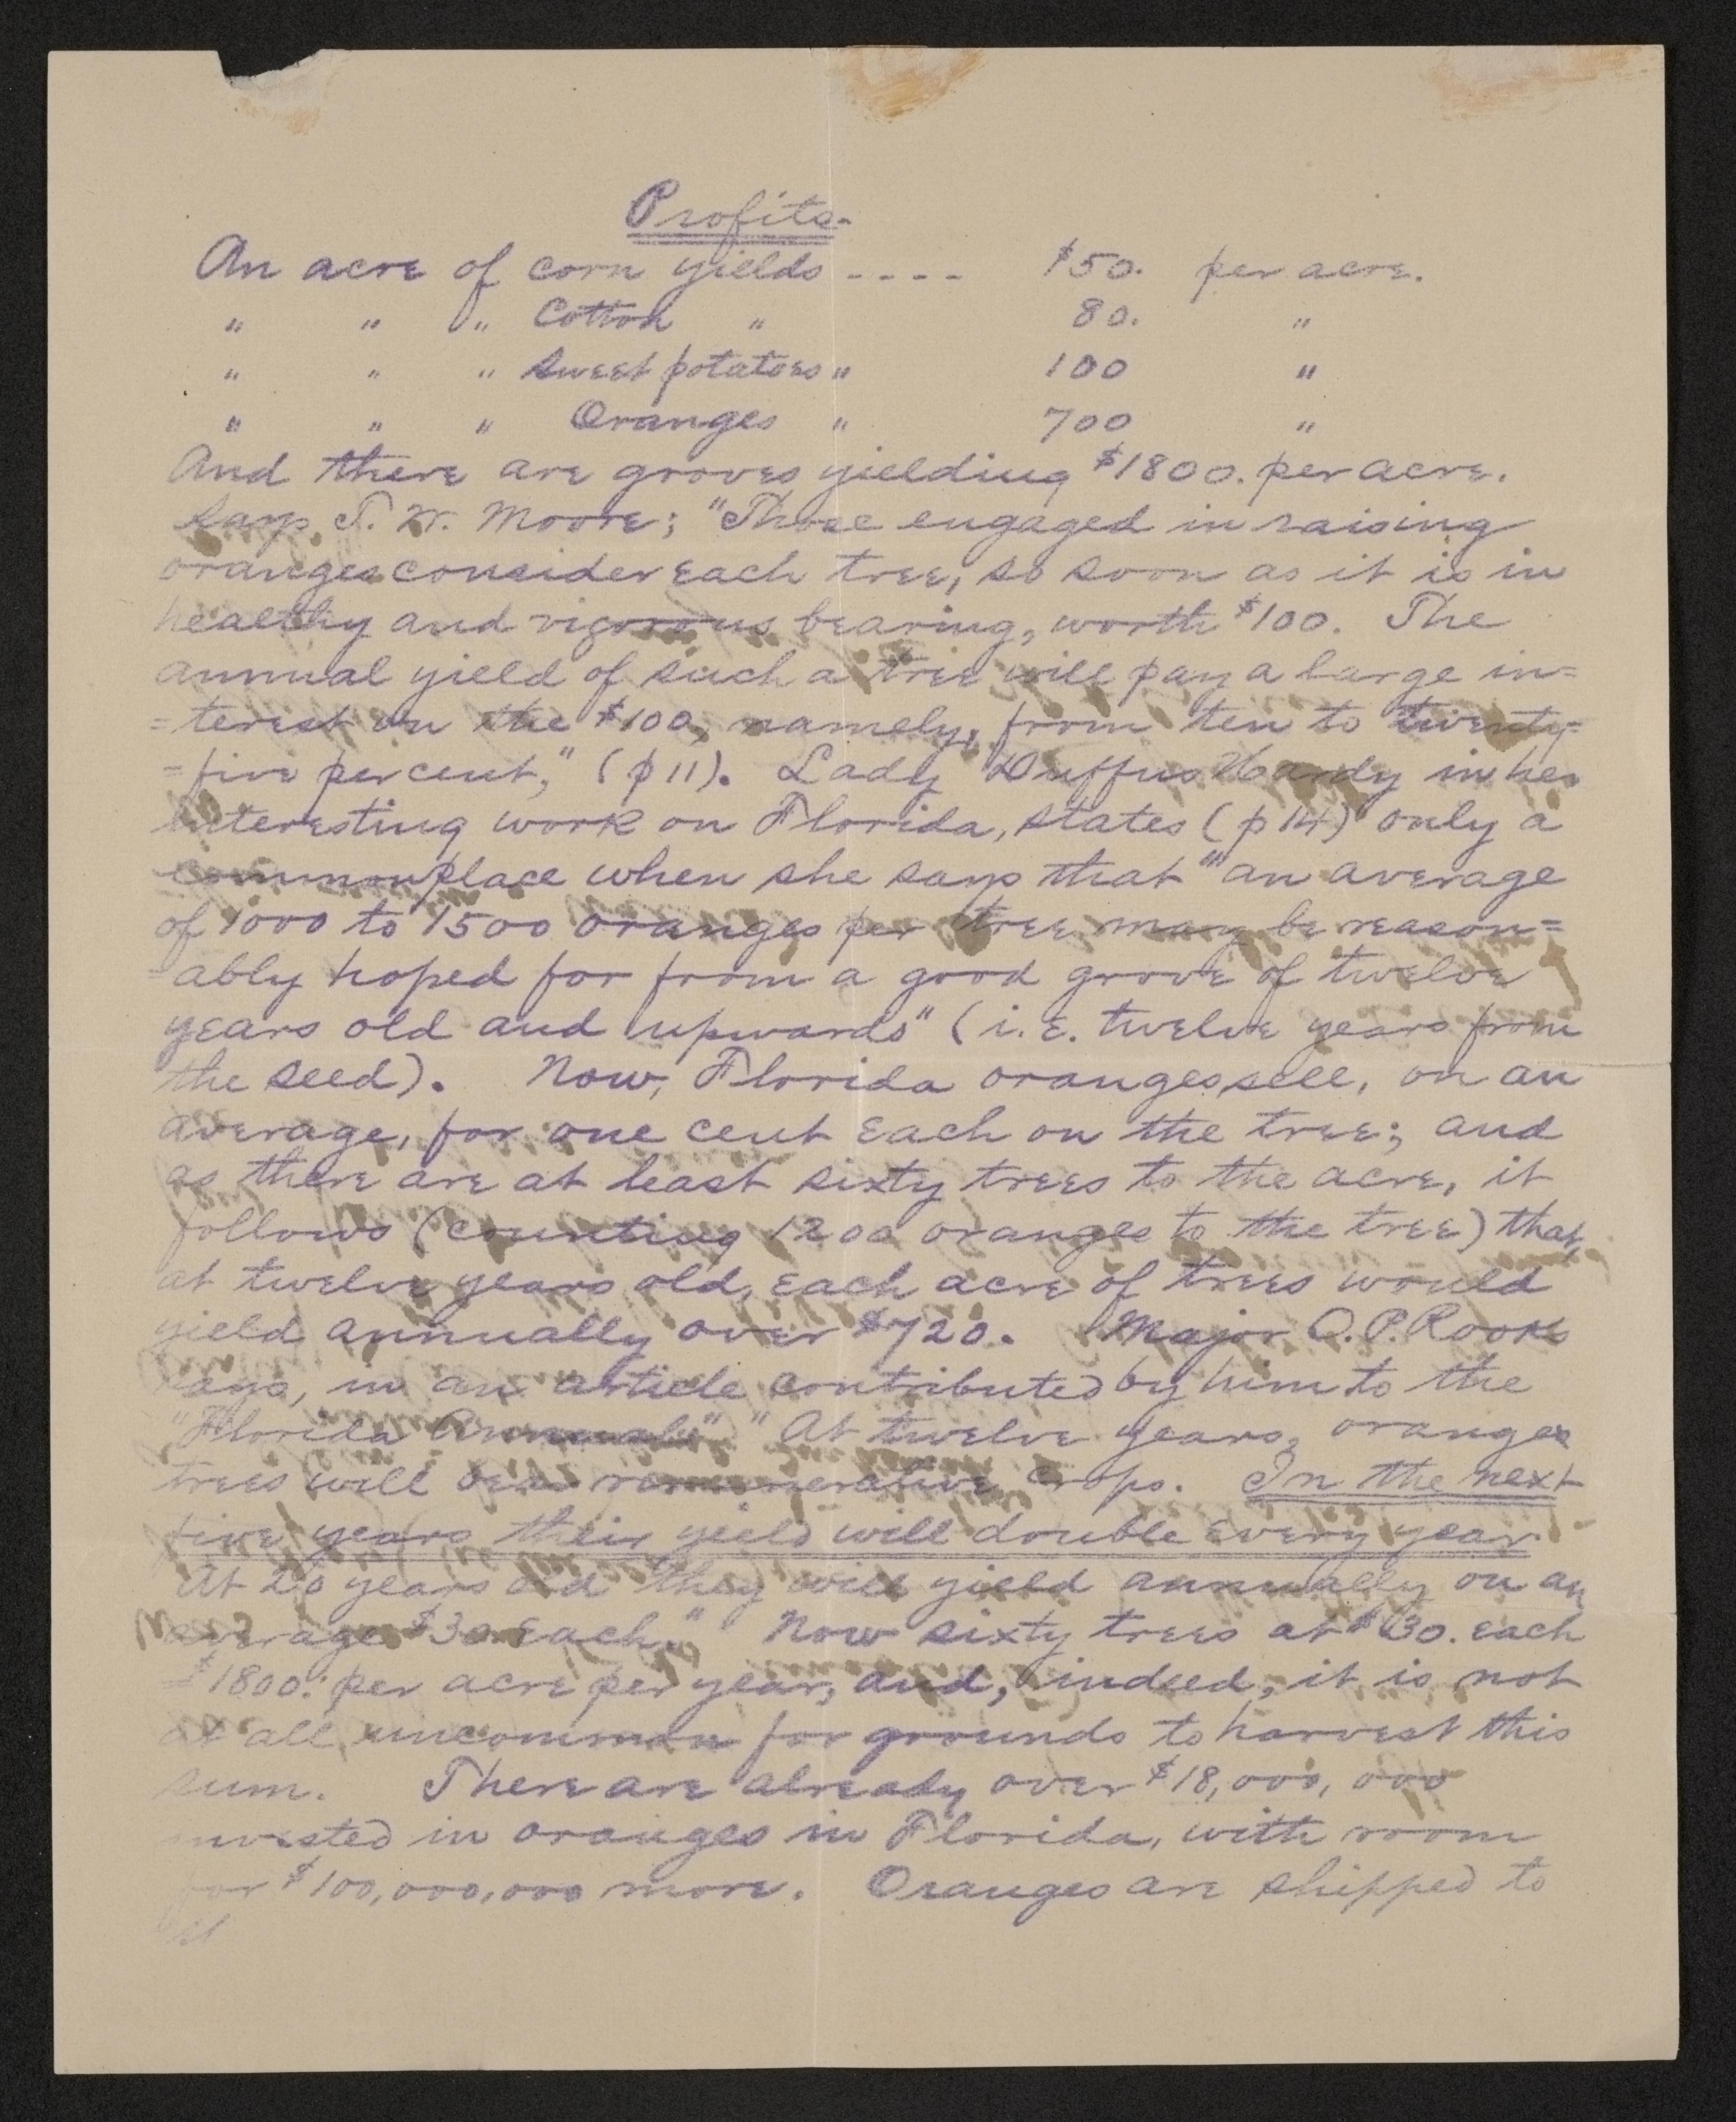 Profits.
An acre of corn yields - - - - $50. per acre.
" " " Cotton " 80. "
" " " Sweet potatoes " 100 "
" " " Oranges " 700 "
And there are groves yielding $1800. per acre.
Says T. W. Moore; "Those engaged in raising
oranges consider each tree, so soon as it is in
healthy and vigorous bearing, worth $100. The
annual yield of such a tree will pay a large in=
=terest on the $100, namely, from ten to twenty=
=five per cent," (p 11). Lady Duffus Hardy in her
interesting work on Florida, states (p 14) only a
commonplace when she says that "an average
of 1000 to 1500 oranges per tree may be reason=
=ably hoped for from a good grove of twelve
years old and upwards" (i.e. twelve years from
the seed). Now, Florida oranges sell, on an
average, for one cent each on the tree; and
as there are at least sixty trees to the acre, it
follows (counting 1200 oranges to the tree) that,
at twelve years old, each acre of trees would
yield annually over $720. Major O. P. Rooks
says, in an article contributed by him to the
"Florida Annual" "At twelve years, orange
trees will bear remunerative crops. In the next
five years their yield will double every year.
At 20 years old they will yield annually on an
average $30 each." Now sixty trees at $30. each
= $1800. per acre per year, and, indeed, it is not
at all uncommon for grounds to harvest this
sum. There are already over $18,000,000
invested in oranges in Florida, with room
for $100,000,000 more. Oranges are shipped to